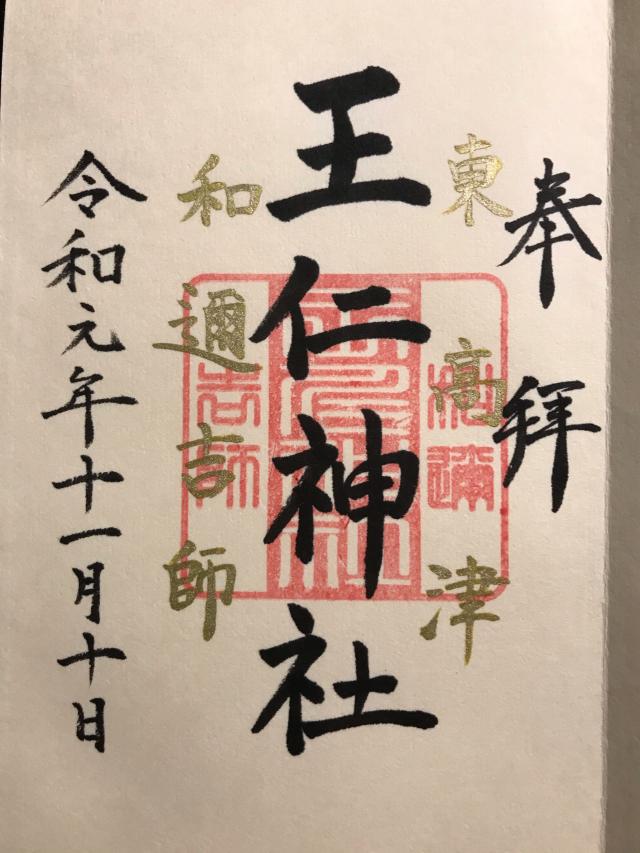 奉拝
東高津
王仁神社
和邇吉師
令和元年十一月十日